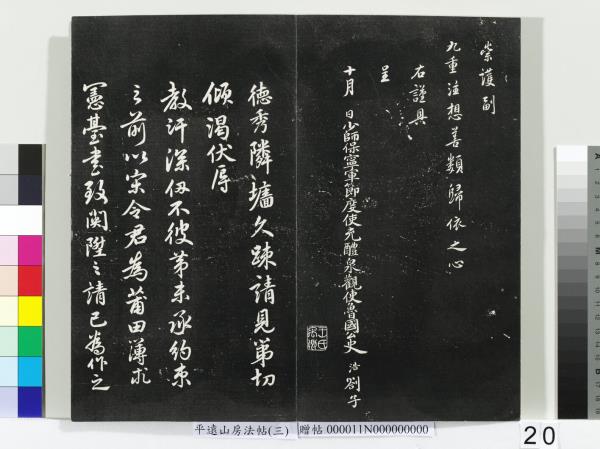 崇護副
九重注想善類歸依之心
右謹具
呈
十月 日少師保寧軍節度使充醴泉觀使魯國公史 浩 劄子
德秀隣墻久踈請見第切
傾渴伏辱
教汗深仞不彼第未承約束
之前以宋令君為莆田薄求
憲臺書致闵陞之請已為作之
平遠山房法帖(三) 贈帖 000011N000000000
20